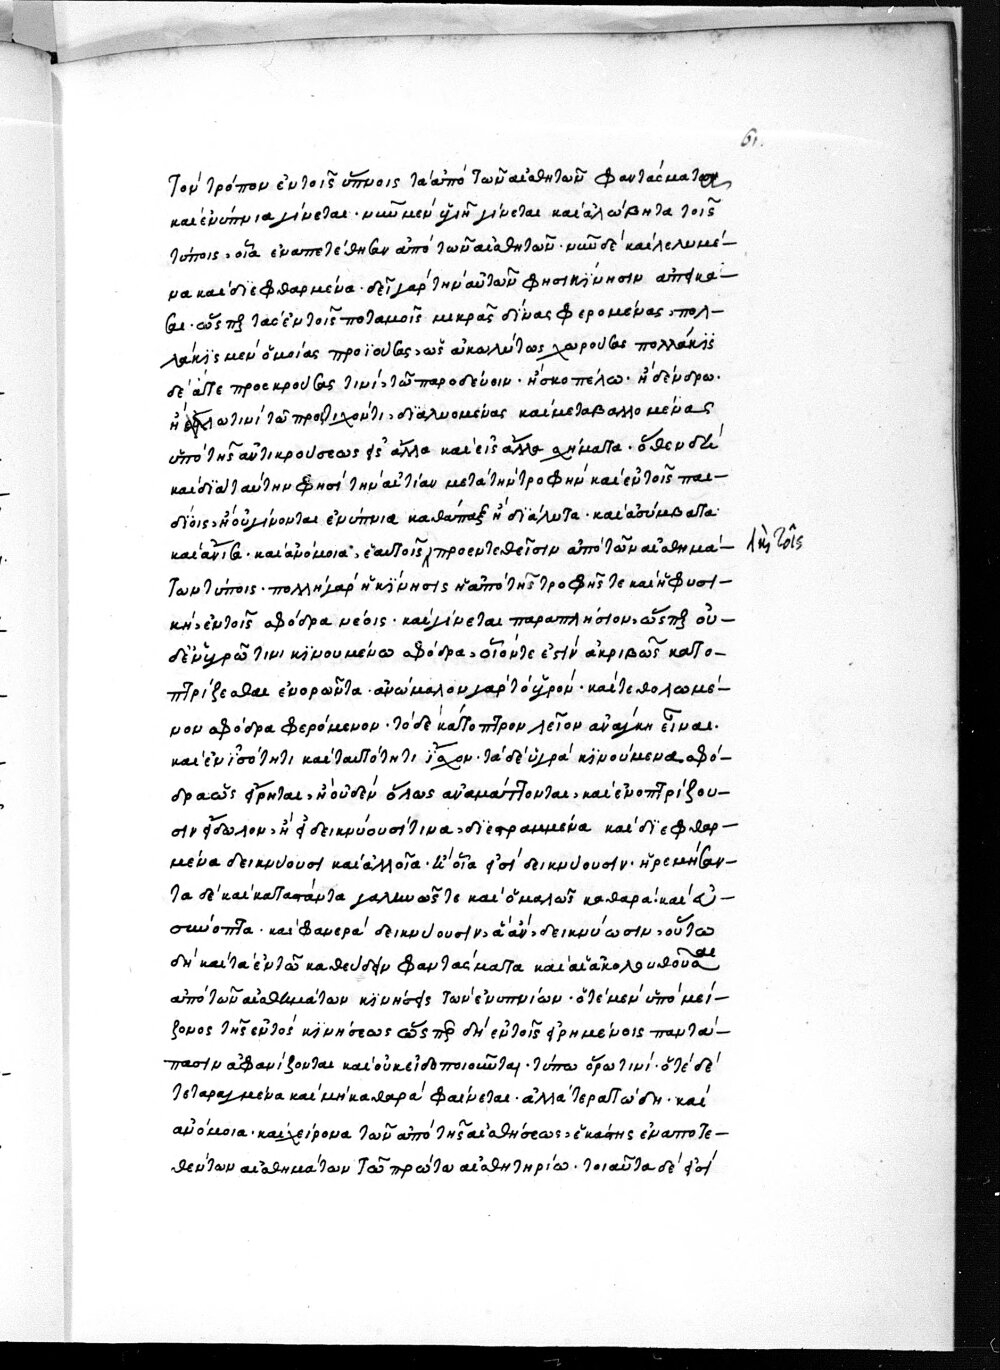 61.
τὸν τρόπον ἐν τοῖς ὕπνοις τὰ ἀπὸ τῶν αἰσθητῶν φαντάσματα
καὶ ἐνύπνια γίνεται· νῦν μὲν γίνεται καὶ ἀλώβητα τοῖς
τύποις, οἷα ἐναπετέθησαν ἀπὸ τῶν αἰσθητῶν· νῦν δὲ καὶ λελυμέ-
να καὶ διεφθαρμένα· δεῖ γὰρ τὴν αὐτῶν φησι κίνησιν ἀπεικά-
σαι· ὥσπερ τὰς ἐν τοῖς ποταμοῖς μικρὰς δίνας φερομένας, πολ-
λάκις μὲν ὁμοίας προϊούσας, ὡς ἀκωλύτως χωρούσας πολλάκις
δὲ ἅτε προσκρούσας τινί, τῷ παροδεύειν· ἢ σκοπέλω· ἢ δένδρω·
ἢ ἄλλω τινὶ τῷ προστυχόντι, διαλυομένας καὶ μεταβαλλομένας
ὑπὸ τῆς ἀντικρούσεως εἰς ἄλλα καὶ εἰς ἄλλα σχήματα· ὅθεν δὴ
καὶ διὰ ταύτην φησὶ τὴν αἰτίαν μετὰ τὴν τροφὴν καὶ ἐν τοῖς παι-
δίοις, ἢ οὐ γίνονται ἐνύπνια καθάπαξ ἢ διάλυτα· καὶ ἀσύμβατα
καὶ ἄνισα· καὶ ἀνόμοια, ἑαυτοῖς προεντεθεῖσιν ἀπὸ τῶν αἰσθημά-
των τύποις· πολλὴ γὰρ ἡ κίνησις ἡ ἀπὸ τῆς τροφῆς τε καὶ ἡ φυσι-
κὴ, ἐν τοῖς σφόδρα νέοις· καὶ γίνεται παραπλήσιον, ὥσπερ οὐ-
δὲν ὑγρῷ τινι κινουμένω σφόδρα, οἷόν τε ἐστὶν ἀκριβῶς κατο-
πτρίζεσθαι ἐνορῶντα· ἀνώμαλον γὰρ τὸ ὑγρόν· καὶ τεθολωμέ-
νον σφόδρα φερόμενον· τὸ δὲ κάτοπτρον λεῖον ἀνάγκη εἶναι·
καὶ ἐν ἰσότητι καὶ ταυτότητι ἴσχον· τὰ δὲ ὑγρὰ κινούμενα σφό-
δρα ὡς εἴρηται, ἢ οὐδὲν ὅλως ἀναμάττονται, καὶ ἐνοπτρίζου-
σιν εἴδωλον, ἢ εἰ δεικνύουσί τινα, διεστραμμένα καὶ διεφθαρ-
μένα δεικνύουσι καὶ ἀλλοῖα· ἢ οἷα εἰσὶ δεικνύουσιν· ἠρεμήσαν-
τα δὲ καὶ καταστάντα γαληνῶς τε καὶ ὁμαλῶς καθαρὰ· καὶ εὐ-
σύνοπτα· καὶ φανερὰ δεικνύουσιν, ἃ ἂν, δεικνύωσιν, οὕτω
δὴ καὶ τὰ ἐν τῷ καθεύδειν φαντάσματα καὶ αἱ ἀκολουθοῦσαι
ἀπὸ τῶν αἰσθημάτων κινήσεις τῶν ἐνυπνίων· ὁτὲ μὲν ὑπὸ μεί-
ζονος τῆς ἐντὸς κινήσεως ὥσπερ δὴ ἐν τοῖς εἰρημένοις παντά-
πασιν ἀφανίζονται καὶ οὐκ εἰδοποιοῦνται· τύπω ὅτω τινί· ὁτὲ δὲ
τεταραγμένα καὶ μὴ καθαρὰ φαίνεται· ἀλλὰ τερατώδη· καὶ
ἀνόμοια· καὶ χείρονα τῶν ἀπὸ τῆς αἰσθήσεως, ἑκάστης ἐναποτε-
θέντων αἰσθημάτων τῷ πρώτω αἰσθητηρίω· τοιαῦτα δέ εἰσι